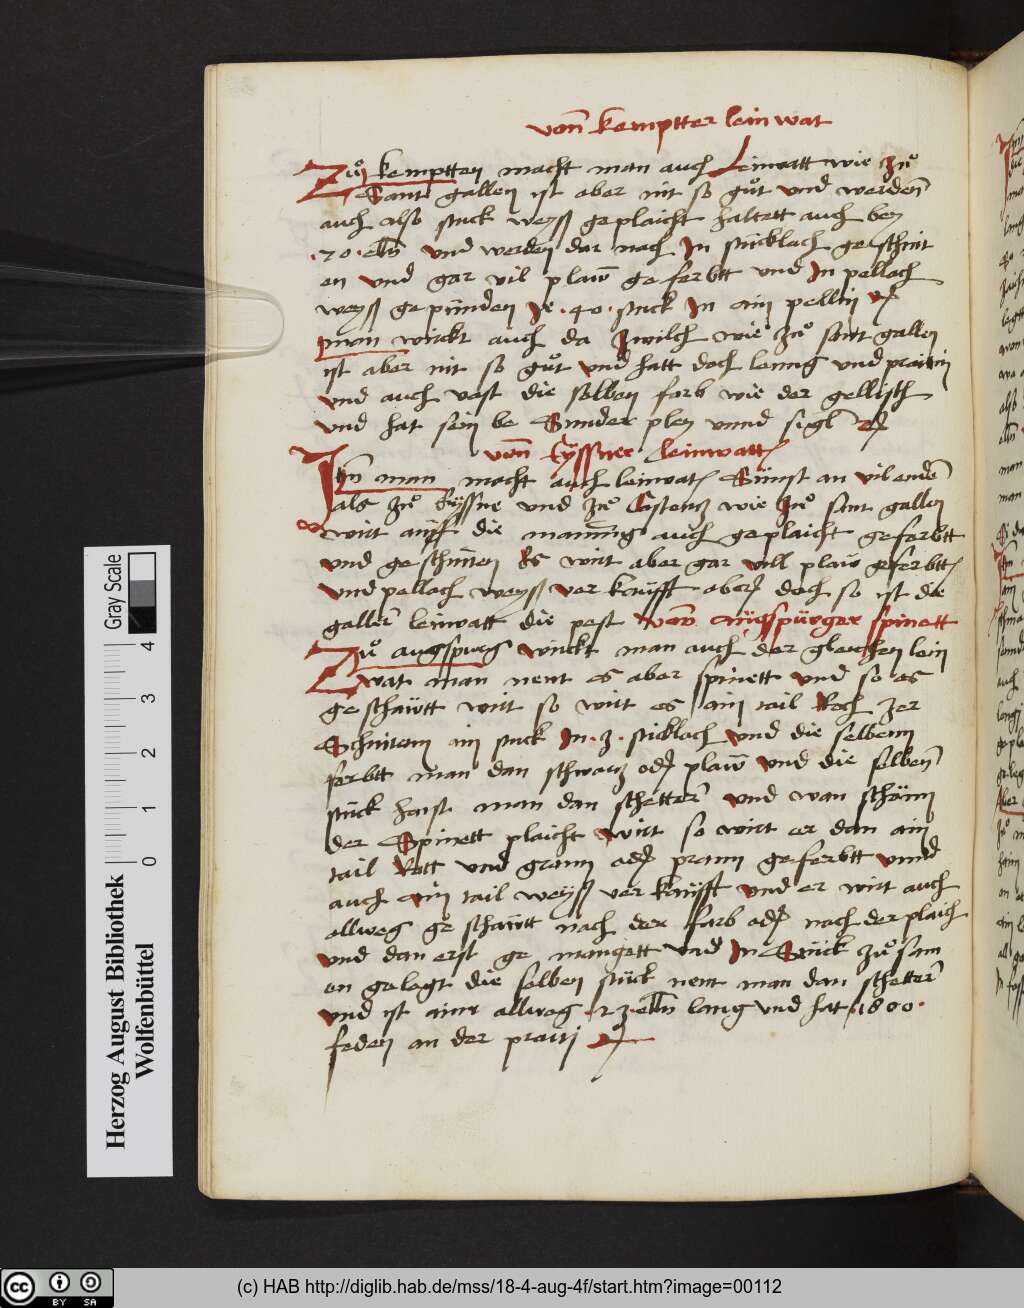 vonn kemptter leinwat
Zuo kemptten macht man auch Leinwatt wie zuo
Sant gallen ist aber nit so guot vnd werdenn
auch also stuck weyss geplaicht haltett auch bey
.70. elln vnd werden dar nach In stucklach geschnit
en vnd gar vil plaw geferbtt vnd In pellach
weyss gepunden Je .40. stuck In ain pellin
man wirckt auch da Zwilch wie zuo sant gallen
ist aber nit so guot vnd hatt doch leng vnd praittin
vnd auch vast die selben farb wie der gellisch
vnd hat sein be Sunder pley vnnd sigl
vonn Eyssner leinwatt
Itm man macht auch leinwat Sunst an vil enden
als zuo Eyssne vnd zuo Costentz wie zuo sant gallen
wirt auff die mannung auch geplaicht geferbtt
vnd geschniten Es wirt aber gar vill plaw geferbtt
vnd pellach weyss ver kaufft aber doch so ist die
galler leinwatt die pest vonn augspurger spinett
Zuo augspurg wirckt man auch der gleichen lein
wat man nent es aber spinett vnd so es
geschawtt wirt so wirt es ain tail Roch zer
Schniten ain stuck In .3. stucklach vnd die selbenn
ferbtt man dan schwartz oder plaw vnd die selbenn
stuck haist man dan schetter vnd wan schonn
der Spinett plaicht wirt so wirt er dan ain
tail Rott vnd gronn oder prann geferbtt vnnd
auch ain tail weyss ver kaufft vnd er wirt auch
allweg geschawtt nach der farb oder nach der plaich
vnd dan erst ge mangett vnd In Stuck zuo sam
en gelegt die selben stuck nent man dan schetter
vnd ist ainr allweg .23. elln lang vnd hat .1800.
feden an der praiti
Gray Scale
4
3
2
1
0
Herzog August Bibliothek
Wolfenbüttel
cc BY SA
(c) HAB http://diglib.hab.de/mss/18-4-aug-4f/start.htm?image=00112